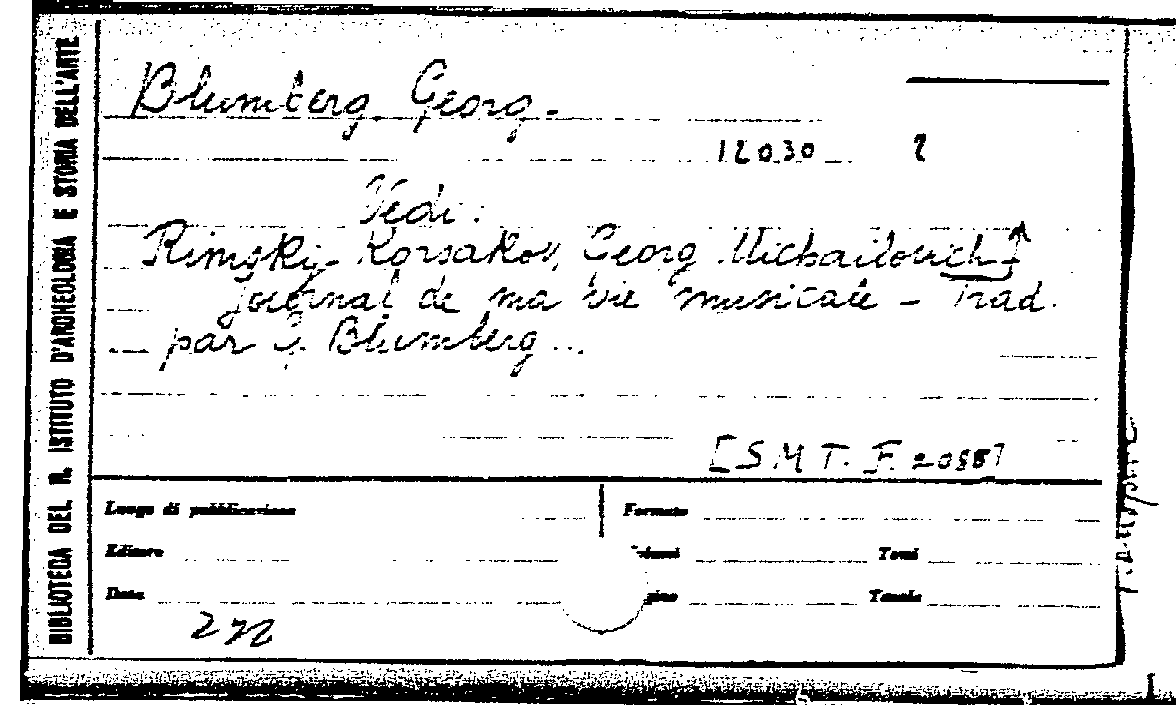 BIBLIOTECA DEL R. ISTITUTO D'ARCHEOLOGIA E STORIA DELL'ARTE
Blumberg, Georg.
12030
Vedi:
Rimsky-Korsakov, Georg Michailovich
Journal de ma vie musicale - Trad.
par G. Blumberg ...
[S M T. F. 2085]
Luogo di pubblicazione
Formato
Editore
Tomi
Data
Tavole